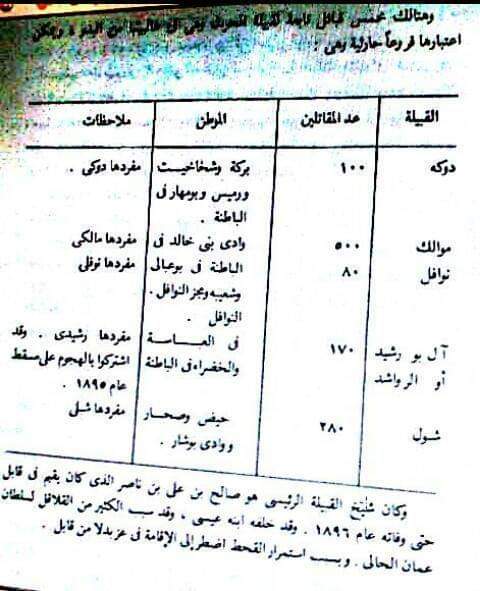 وهنالك خمس قبائل تابعة لقبيلة الحرث وهى فى غالبيتها من البدو ويمكن
اعتبارها فروعاً حارثية وهى :
القبيلة عدد المقاتلين الموطن ملاحظات
دوكه ١٠٠ بركة وشخاخيت مفردها دوكى .
ورميس وبومهار فى
الباطنة .
موالك ٥٠٠ وادى بنى خالد فى مفردها مالكى
نوافل ٨٠ الباطنة فى بوعبالى مفردها نوفلى
وشعيبه ومجز النوافل .
النوافل .
آل بو رشيد ١٧٠ فى العباسة مفردها رشيدى . وقد
أو الرواشد والخضراء فى الباطنة اشتركوا بالهجوم على مسقط
عام ١٨٩٥ .
شول ٢٨٠ حيض وصحار مفردها شلى
ووادى بوشار .
وكان شيخ القبيلة الرئيسى هو صالح بن على بن ناصر الذى كان يقيم فى قابل
حتى وفاته عام ١٨٩٦ . وقد خلفه ابنه عيسى ، وقد سبب الكثير من القلاقل لسلطان
عمان الحالى . وبسبب استمرار القحط اضطر إلى الإقامة فى عز بدلا من قابل .